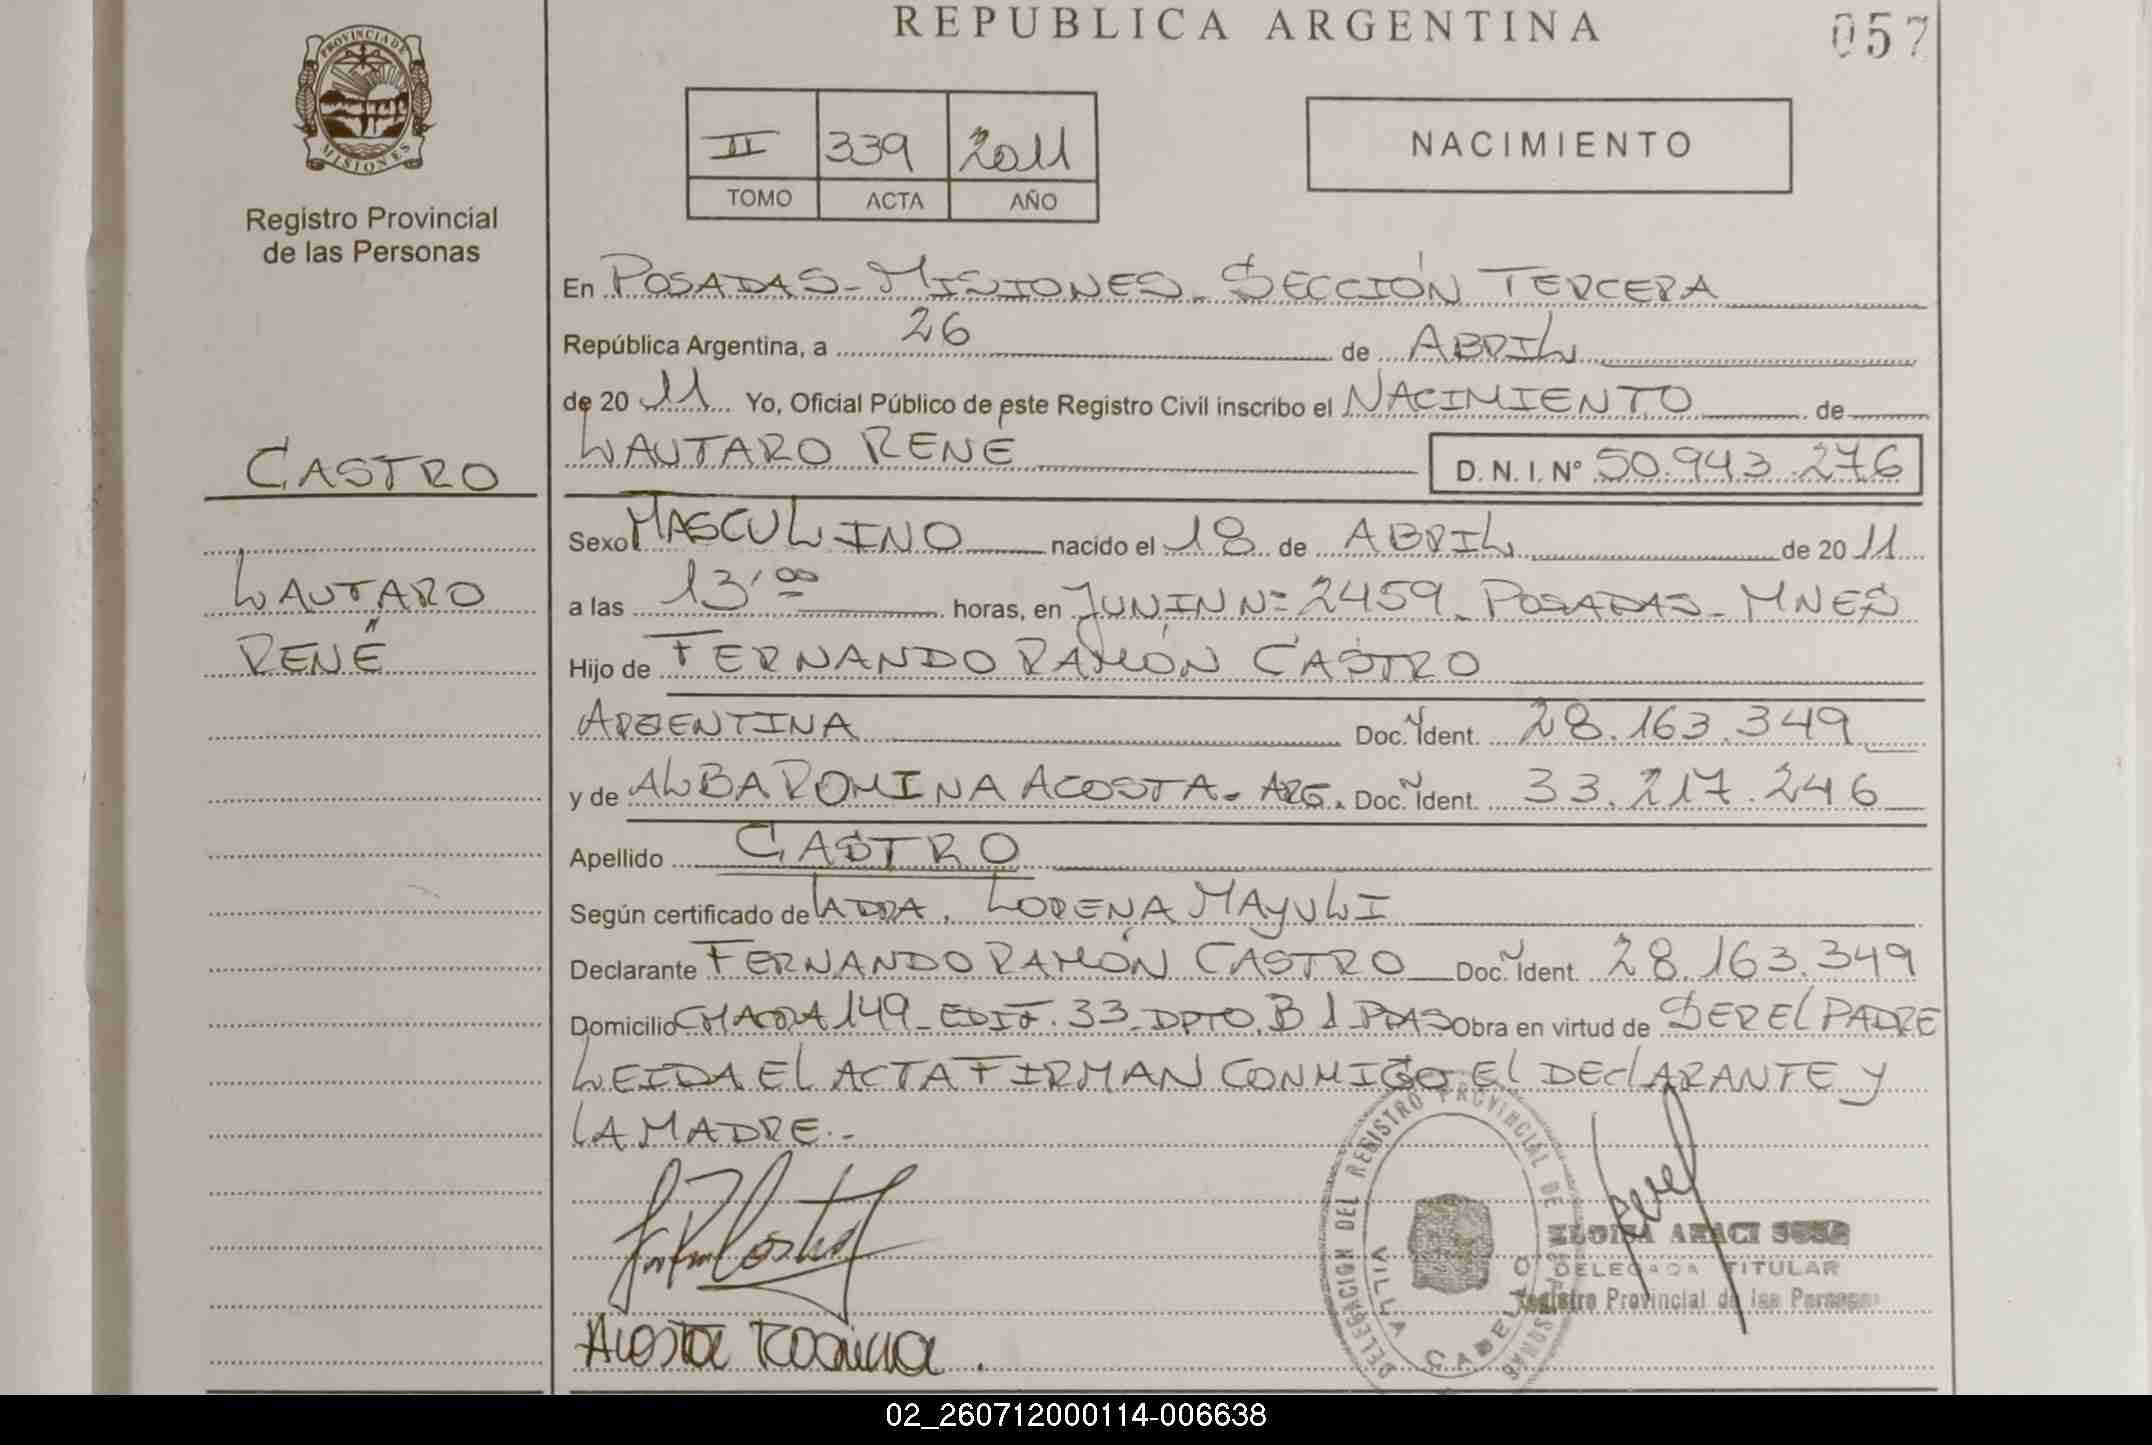 REPUBLICA ARGENTINA
057
PROVINCIA DE
MISIONES
Registro Provincial
de las Personas
II 339 2011
TOMO ACTA AÑO
NACIMIENTO
En POSADAS - MISIONES - SECCIÓN TERCERA
República Argentina, a 26 de ABRIL
de 2011 Yo, Oficial Público de este Registro Civil inscribo el NACIMIENTO de
LAUTARO RENÉ D. N. I. Nº 50.943.276
CASTRO
LAUTARO
RENÉ
Sexo MASCULINO nacido el 18 de ABRIL de 2011
a las 13,00 horas, en JUNIN Nº 2459 - POSADAS - MNES
Hijo de FERNANDO RAMÓN CASTRO
ARGENTINA Doc. Ident. 28.163.349
y de ALBA ROMINA ACOSTA - ARG. Doc. Ident. 33.217.246
Apellido CASTRO
Según certificado de LORENA MAYULI
Declarante FERNANDO RAMÓN CASTRO Doc. Ident. 28.163.349
Domicilio CHACRA 149 - EDIF. 33 - DPTO. B 1 PDAS Obra en virtud de SER EL PADRE
LEIDA EL ACTA FIRMAN CONMIGO EL DECLARANTE Y
LA MADRE.-
DELEGACION DEL REGISTRO PROVINCIAL DE PERSONAS
VILLA CABELLO
ARACI
DELEGADA TITULAR
Registro Provincial de las Personas
Acosta Romina.
02_260712000114-006638